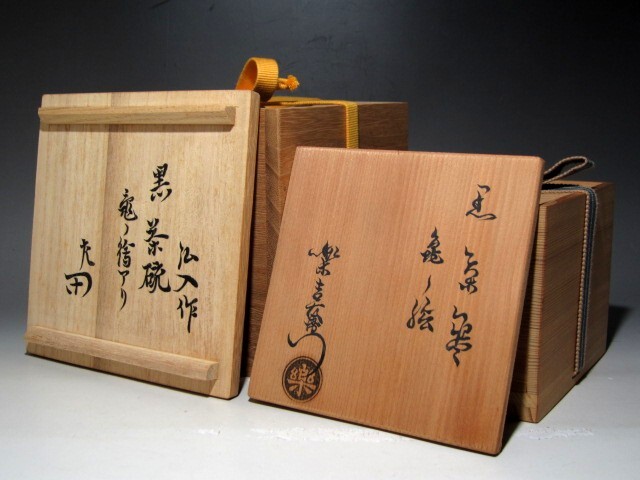 弘入作
黒 茶碗
亀ノ繪アリ
黒 茶碗
亀ノ絵
樂吉左衛門
樂